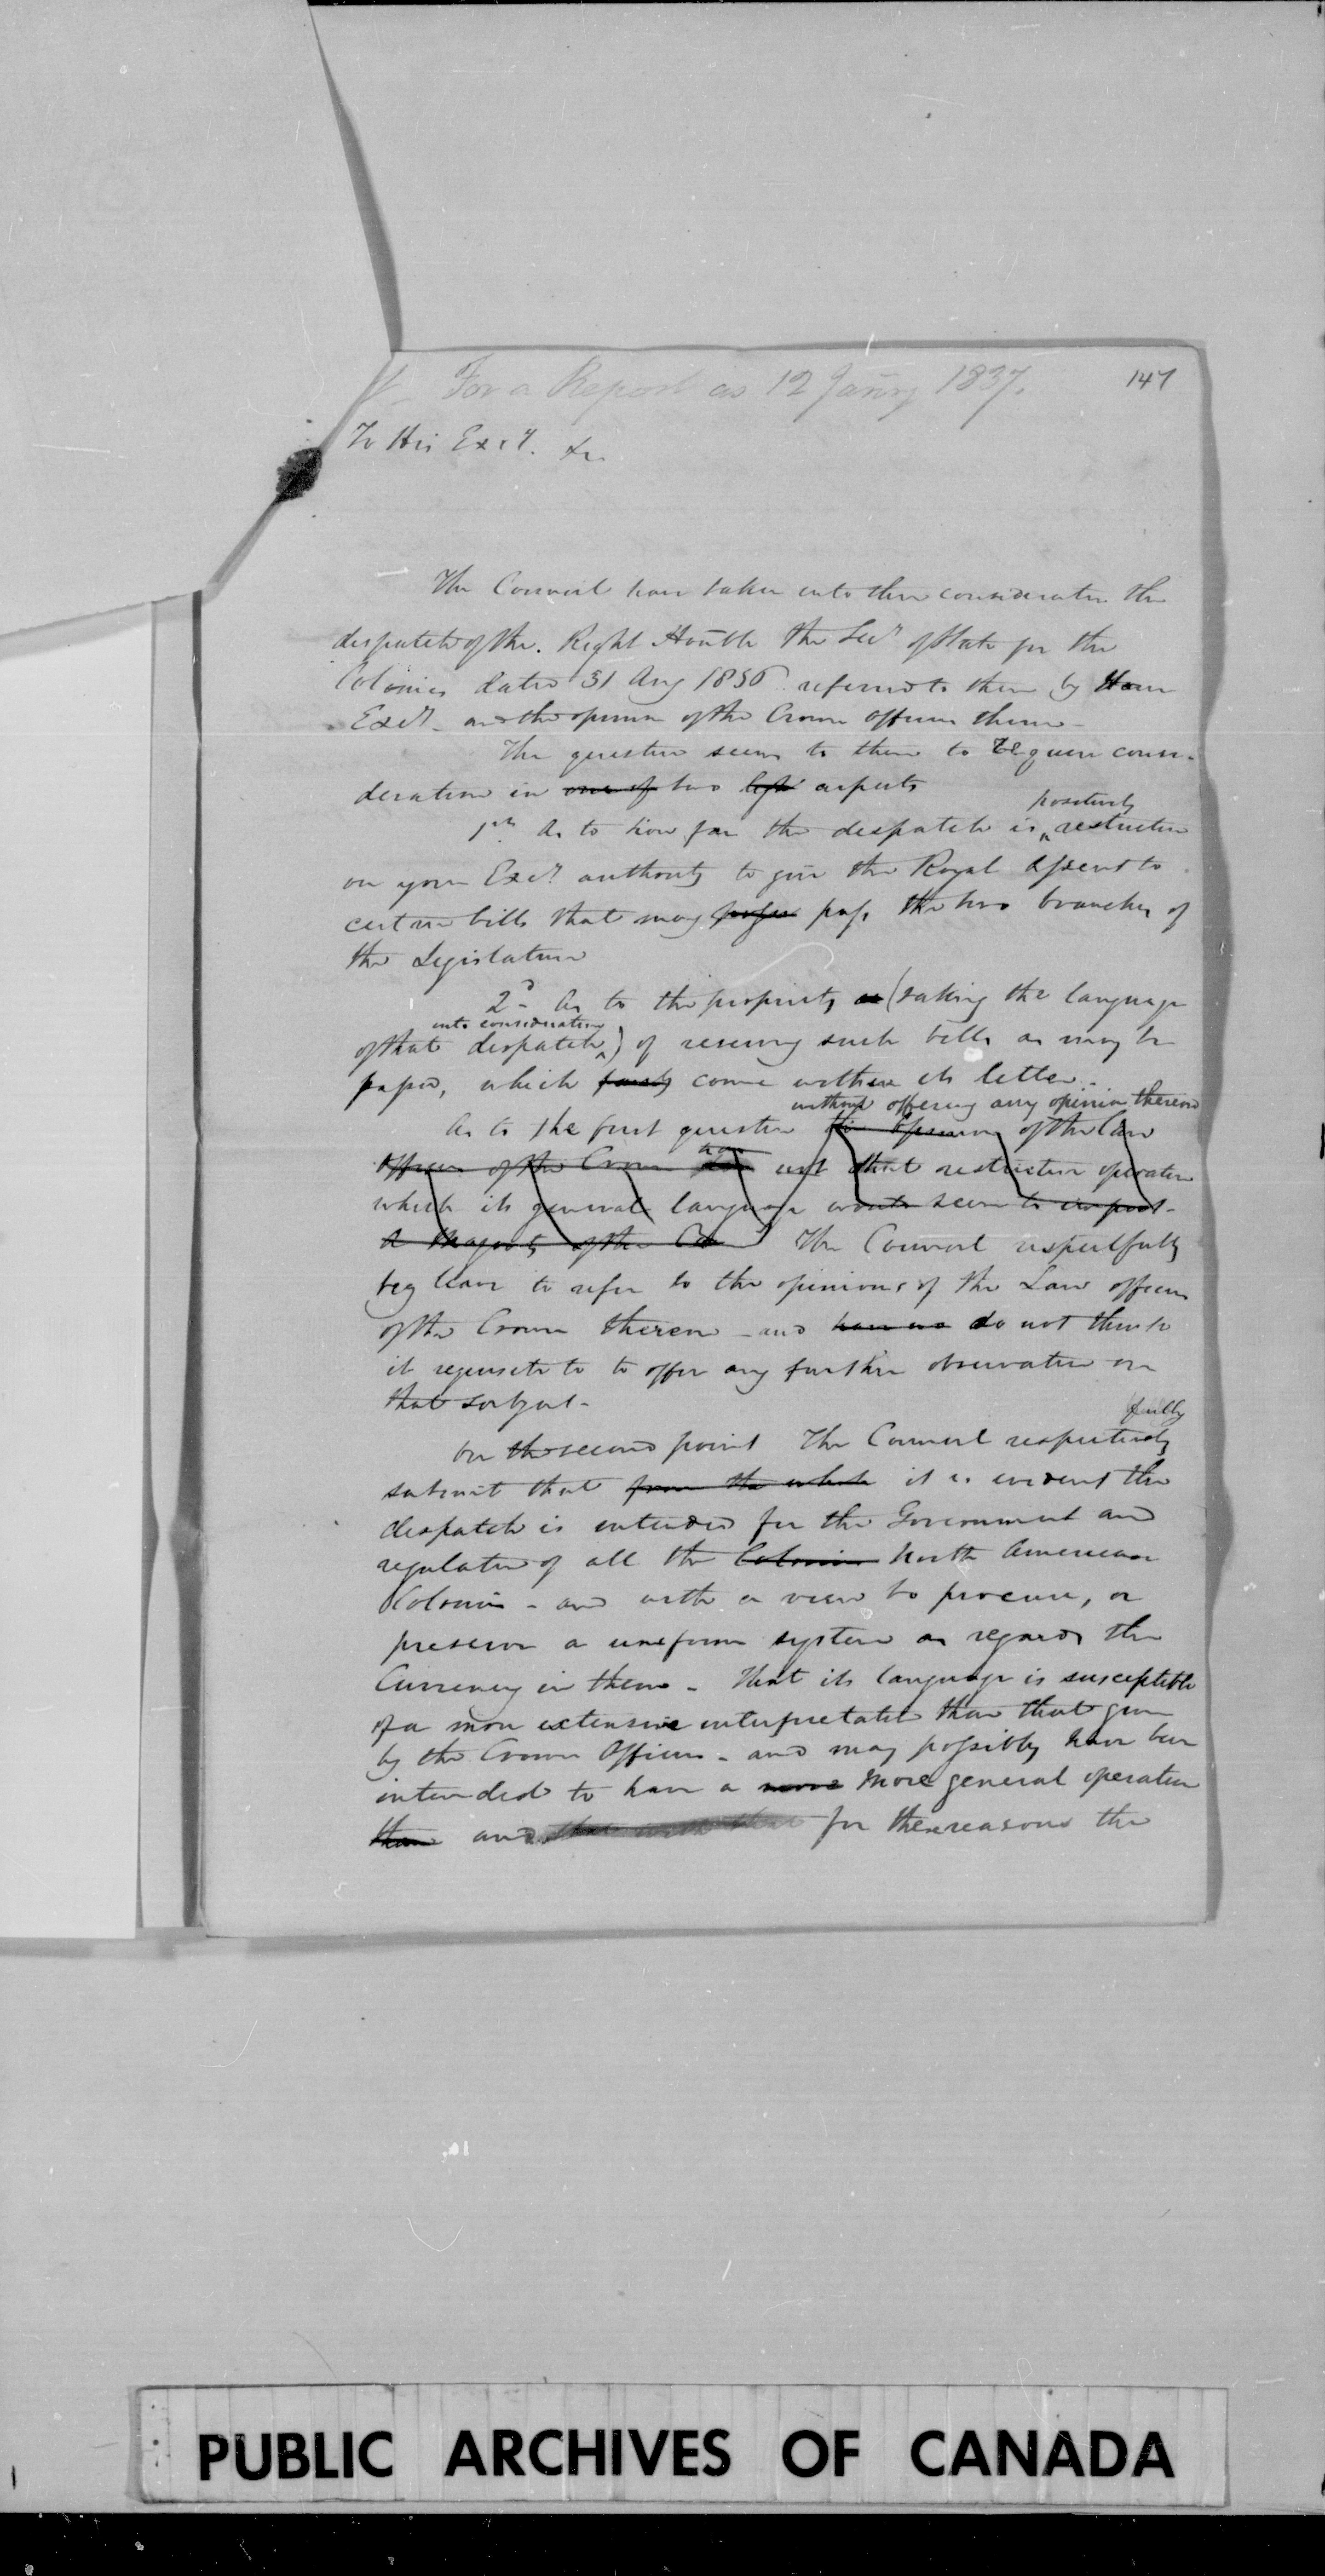 For a Report as 12 Janry 1837.
147
To His Excy. &c.
The Council have taken into their consideration the
despatch of the Right Honble the Secy of State for the
Colonies dated 31 Aug 1836 referred to them by Your
Excy. and the opinion of the Crown officers thereon
The question seems to them to require consi-
deration in one of two aspects
positively
1st As to how far the despatch is restrictive
on your Excy. authority to give the Royal Assent to
certain bills that may pass the two branches of
the Legislature
2d As to the propriety as (taking the language
into consideration
of that despatch) of reserving such bills as may be
passed, which fairly come within its letter.
without offering any opinion thereon
As to the first question the opinion of the Law
officers of the Crown have not that restrictive operation
which its general language would seem to import
A Majority of the Co The Council respectfully
beg leave to refer to the opinions of the Law officers
of the Crown thereon - and have no do not think
it requisite to to offer any further observation on
that subject -
fully
On the second point The Council respectively
submit that from the whole it is evident the
despatch is intended for the Government and
regulation of all the Colonies North American
Colonies - and with a view to procure, or
preserve a uniform system as regards the
Currency in them - that its language is susceptible
of a more extensive interpretation than that given
by the Crown Officers - and may possibly have been
intended to have a more more general operation
than and that with that for these reasons the
PUBLIC ARCHIVES OF CANADA